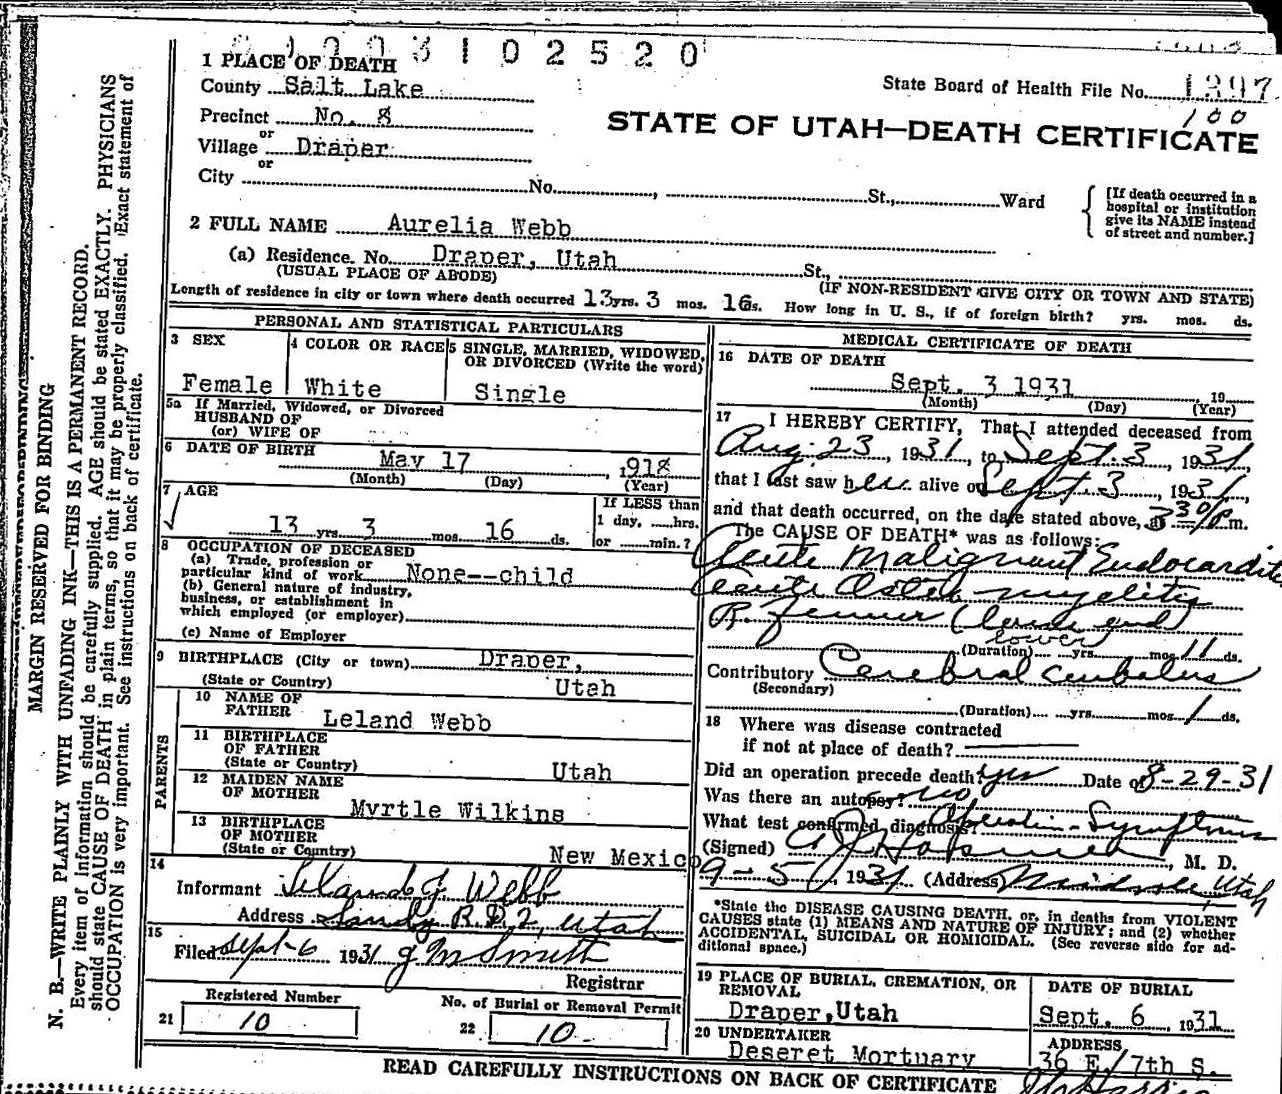 3102520
1 PLACE OF DEATH
County Salt Lake
State Board of Health File No. 1397
100
Precinct No. 8
or
Village Draper
or
STATE OF UTAH—DEATH CERTIFICATE
City No. , St., Ward
{ [If death occurred in a hospital or institution give its NAME instead of street and number.]
2 FULL NAME Aurelia Webb
(a) Residence. No. Draper, Utah St.,
(USUAL PLACE OF ABODE) (IF NON-RESIDENT GIVE CITY OR TOWN AND STATE)
Length of residence in city or town where death occurred 13 yrs. 3 mos. 16 ds. How long in U. S., if of foreign birth? yrs. mos. ds.
PERSONAL AND STATISTICAL PARTICULARS
3 SEX
Female
4 COLOR OR RACE
White
5 SINGLE, MARRIED, WIDOWED, OR DIVORCED (Write the word)
Single
5a If Married, Widowed, or Divorced
HUSBAND OF
(or) WIFE OF
6 DATE OF BIRTH
May 17 , 1918
(Month) (Day) (Year)
7 AGE
13 yrs. 3 mos. 16 ds.
If LESS than
1 day, hrs.
or min.?
8 OCCUPATION OF DECEASED
(a) Trade, profession or
particular kind of work None--child
(b) General nature of industry,
business, or establishment in
which employed (or employer)
(c) Name of Employer
9 BIRTHPLACE (City or town) Draper,
(State or Country) Utah
PARENTS
10 NAME OF
FATHER Leland Webb
11 BIRTHPLACE
OF FATHER
(State or Country) Utah
12 MAIDEN NAME
OF MOTHER Myrtle Wilkins
13 BIRTHPLACE
OF MOTHER
(State or Country) New Mexico
14
Informant Leland J. Webb
Address Sandy R.D.2, Utah
15
Filed Sept-6 1931 J M Smith
Registrar
Registered Number
21 10
No. of Burial or Removal Permit
22 10
MEDICAL CERTIFICATE OF DEATH
16 DATE OF DEATH
Sept. 3 1931 , 19
(Month) (Day) (Year)
17 I HEREBY CERTIFY, That I attended deceased from
Aug. 23, 1931, to Sept. 3, 1931,
that I last saw her alive on Sept. 3, 1931,
and that death occurred, on the date stated above, 3 30/P.m.
The CAUSE OF DEATH* was as follows:
Acute Malignant Endocarditis
Acute Osteomyelitis
R. femur (lower end)
lower
(Duration) yrs. mos. 11 ds.
Contributory Cerebral embolus
(Secondary)
(Duration) yrs. mos. 1 ds.
18 Where was disease contracted
if not at place of death?
Did an operation precede death? Yes Date of 8-29-31
Was there an autopsy? No
What test confirmed diagnosis? Operation-Symptoms
(Signed) , M. D.
9-5, 1931 (Address) Midvale, Utah
*State the DISEASE CAUSING DEATH, or, in deaths from VIOLENT
CAUSES state (1) MEANS AND NATURE OF INJURY; and (2) whether
ACCIDENTAL, SUICIDAL OR HOMICIDAL. (See reverse side for ad-
ditional space.)
19 PLACE OF BURIAL, CREMATION, OR
REMOVAL
Draper,Utah
DATE OF BURIAL
Sept. 6 , 1931
20 UNDERTAKER
Deseret Mortuary
ADDRESS
36 E. 7th S.
READ CAREFULLY INSTRUCTIONS ON BACK OF CERTIFICATE
MARGIN RESERVED FOR BINDING
N. B.—WRITE PLAINLY WITH UNFADING INK—THIS IS A PERMANENT RECORD.
Every item of information should be carefully supplied. AGE should be stated EXACTLY. PHYSICIANS
should state CAUSE OF DEATH in plain terms, so that it may be properly classified. Exact statement of
OCCUPATION is very important. See instructions on back of certificate.